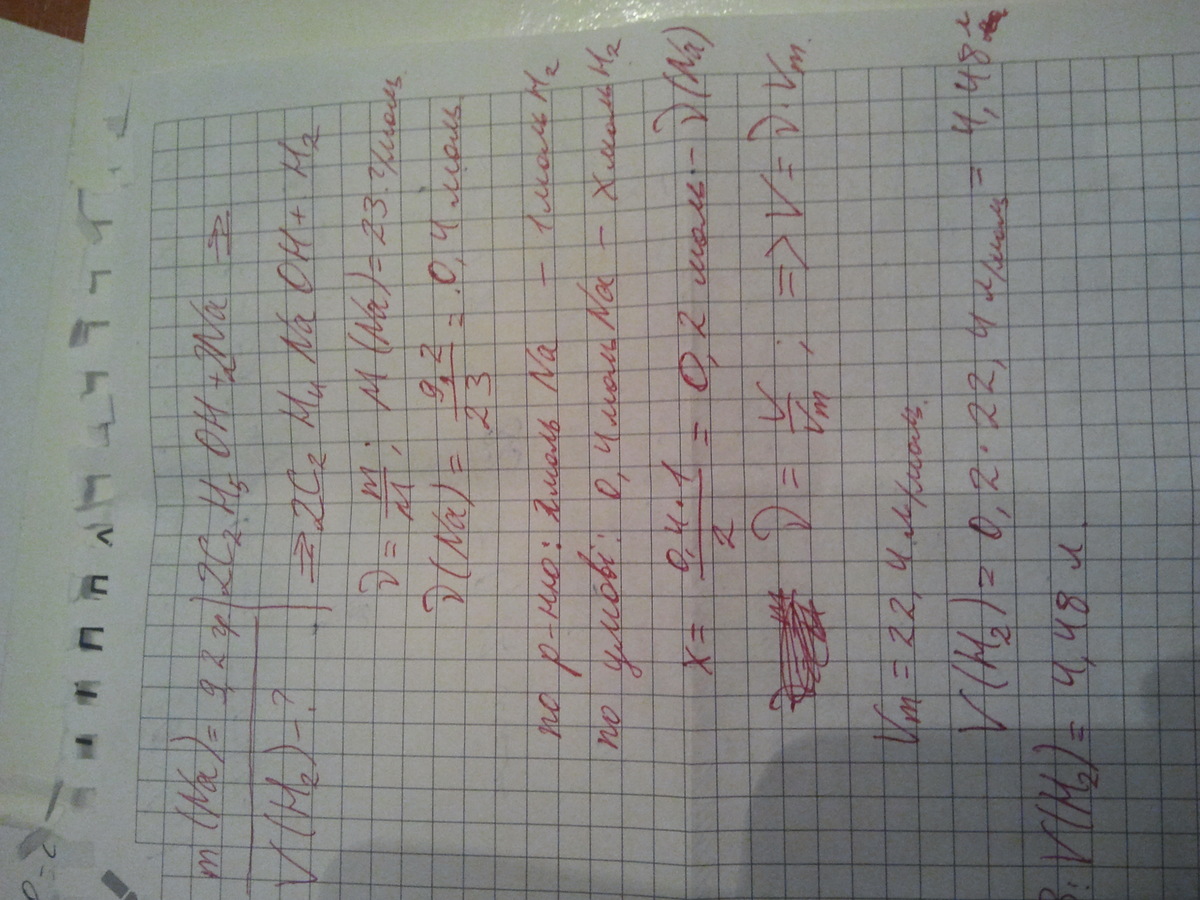 m (Na) = 9,2 г | 2C₂H₅OH + 2Na ⇒
V(H₂) - ? | ⇒ 2C₂H₄NaOH + H₂
ν = m/M ; M(Na) = 23 г/моль
ν(Na) = 9,2/23 = 0,4 моль
по р-нню: 2моль Na - 1моль H₂
по умові: 0,4моль Na - x моль H₂
x = 0,4·1/2 = 0,2 моль - ν(Na)
ν = V/Vm ; => V = ν·Vm.
Vm = 22,4 л/моль
V(H₂) = 0,2·22,4 л/моль = 4,48 л
В: V(H₂) = 4,48 л.